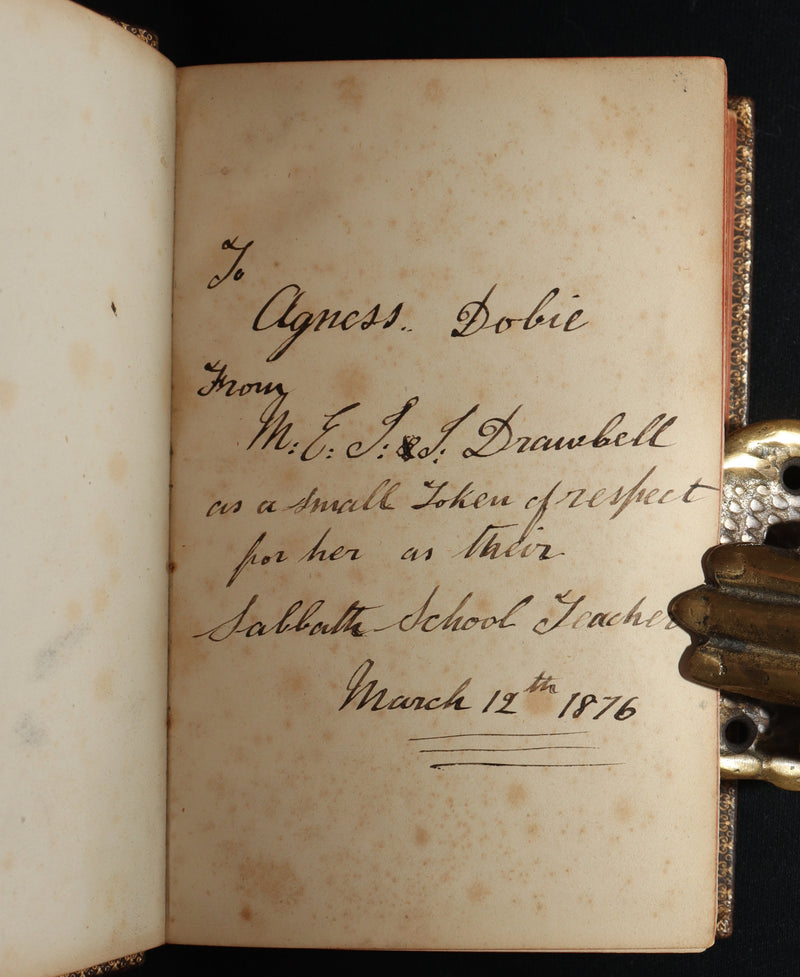 To
Agness. Dobie
From
M: E: J: & J: Drawbell
as a small Token of respect
for her as their
Sabbath School Teacher
March 12th 1876